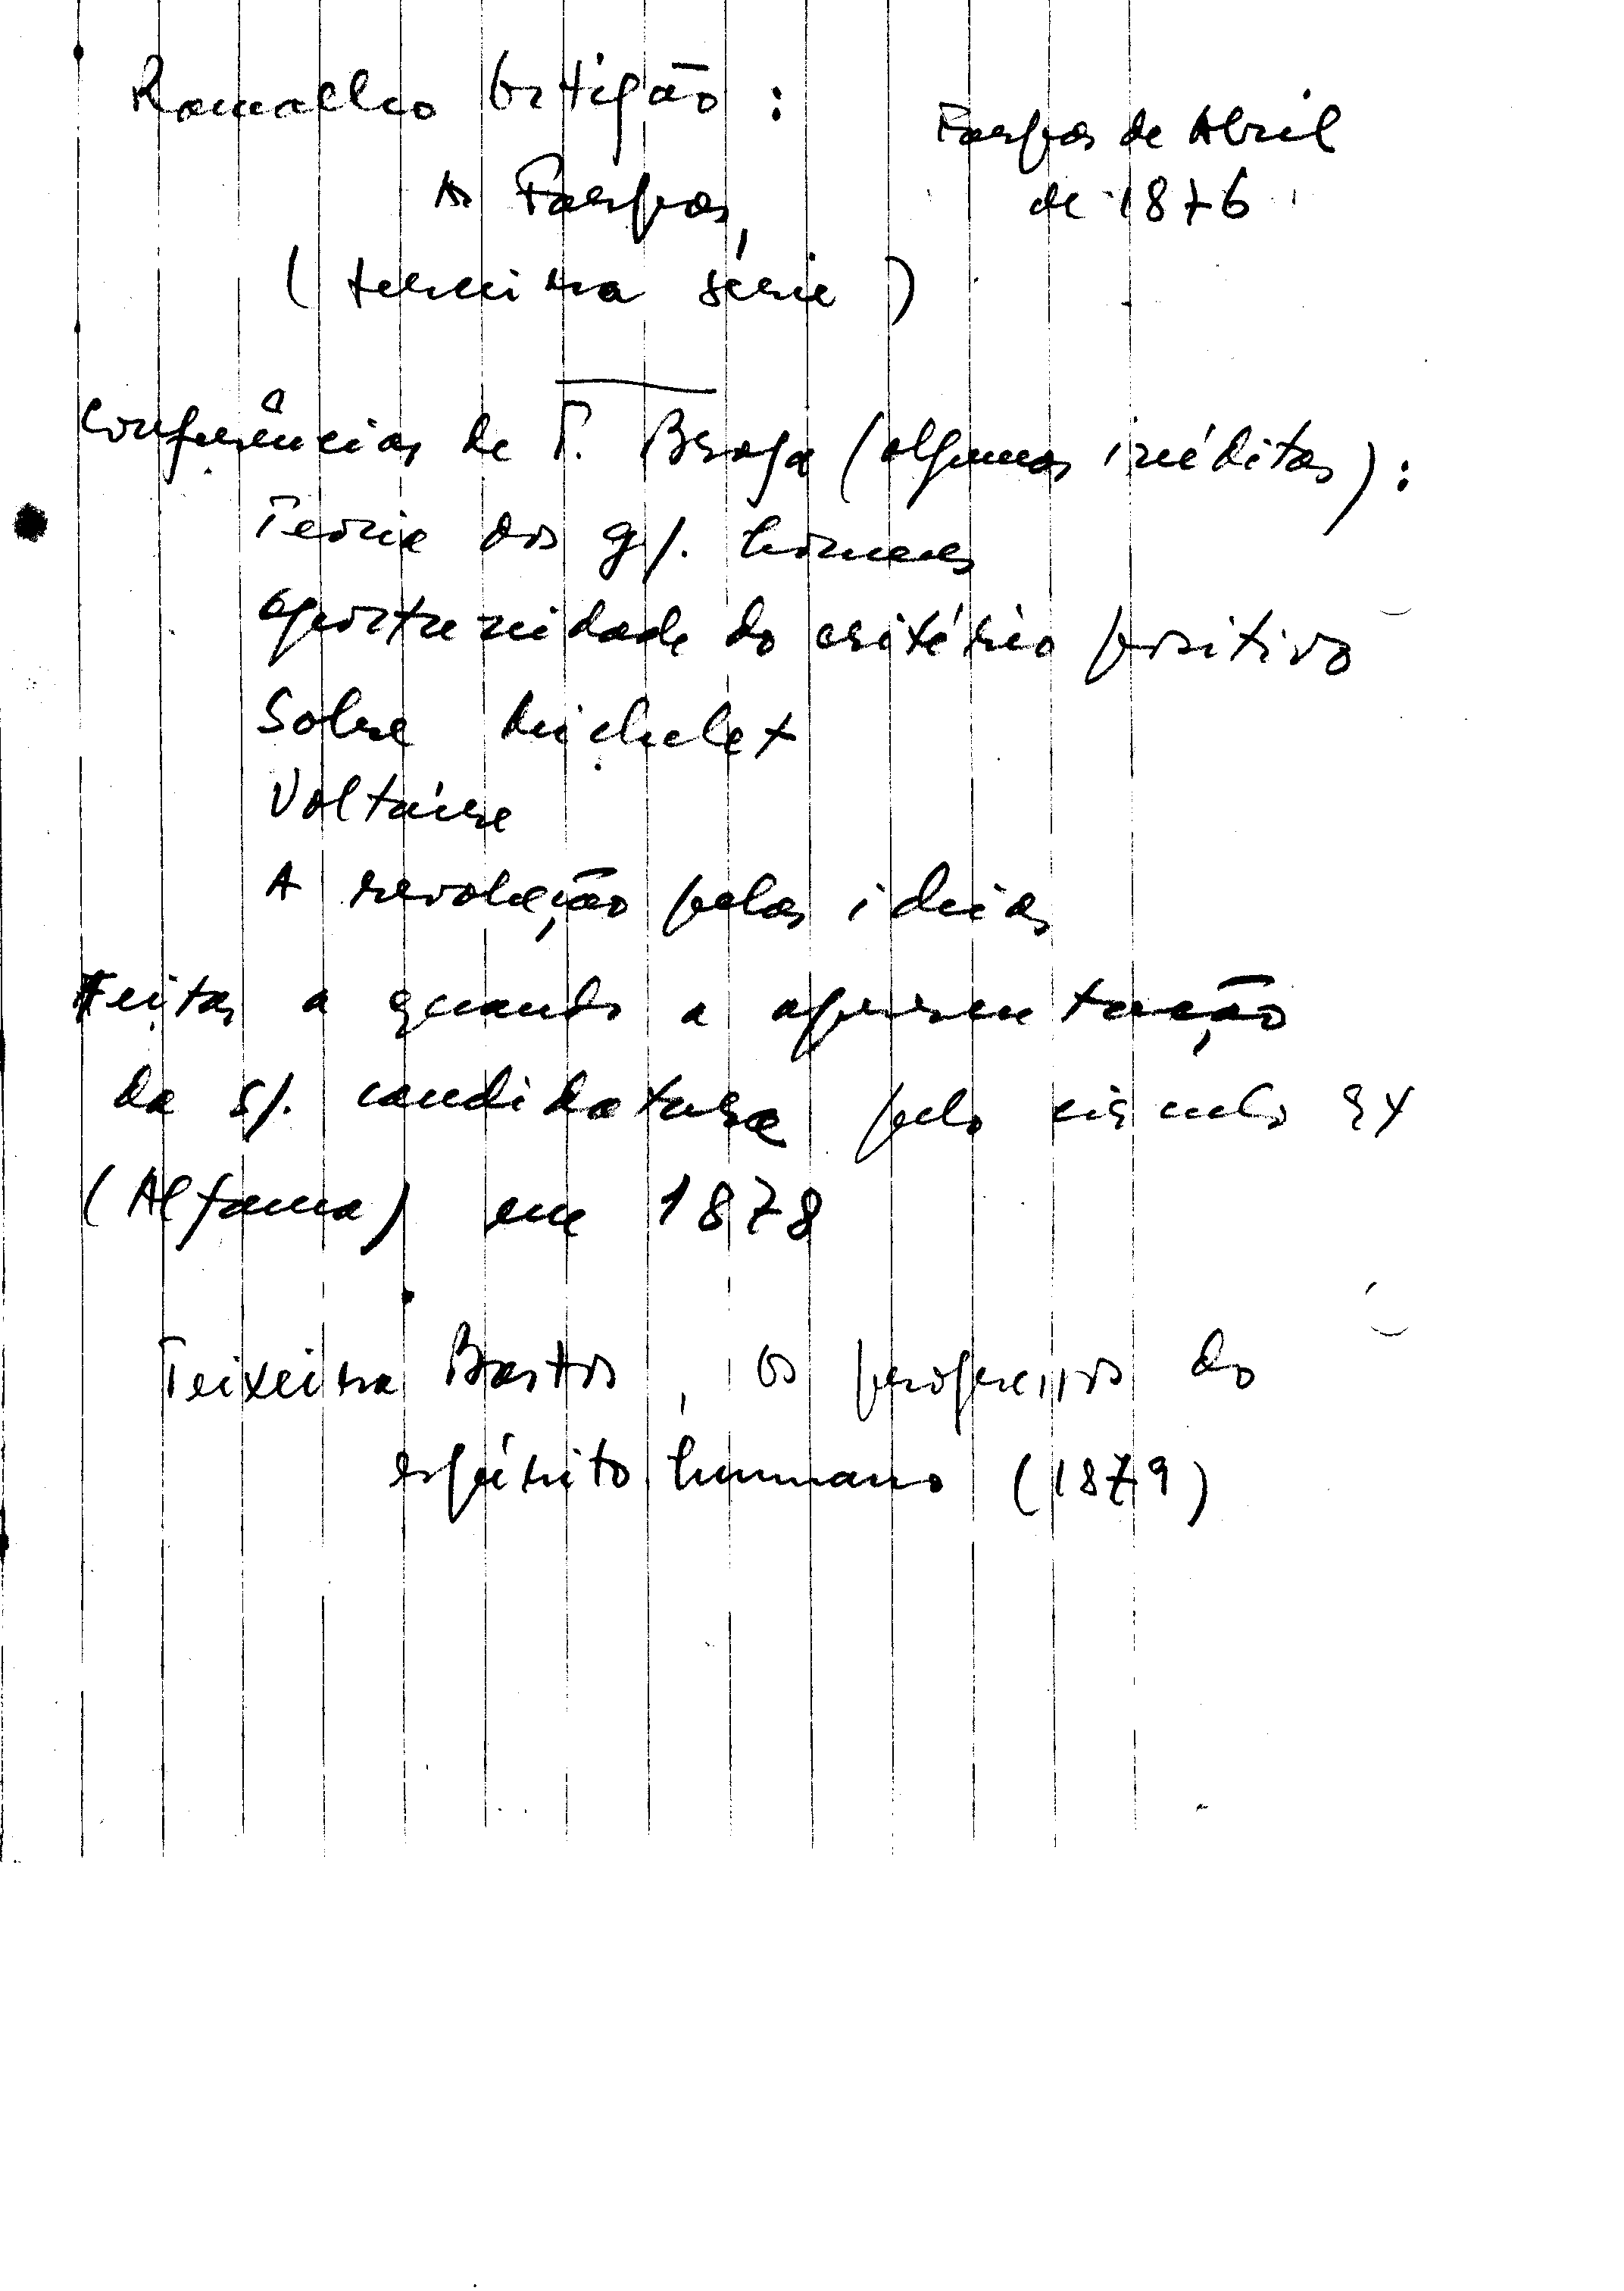 Ramalho Ortigão :
As Farpas,
(terceira série)
Farpas de Abril
de 1876
Conferências de T. Braga (algumas inéditas) :
Teoria dos g/. homens
Oportunidade do critério positivo
Sobre Michelet
Voltaire
A revolução pelas ideias
Feitas a quando a apresentação
da s/. candidatura pelo círculo 94
(Alfama) em 1878
Teixeira Bastos, Os progressos do
espírito humano (1879)